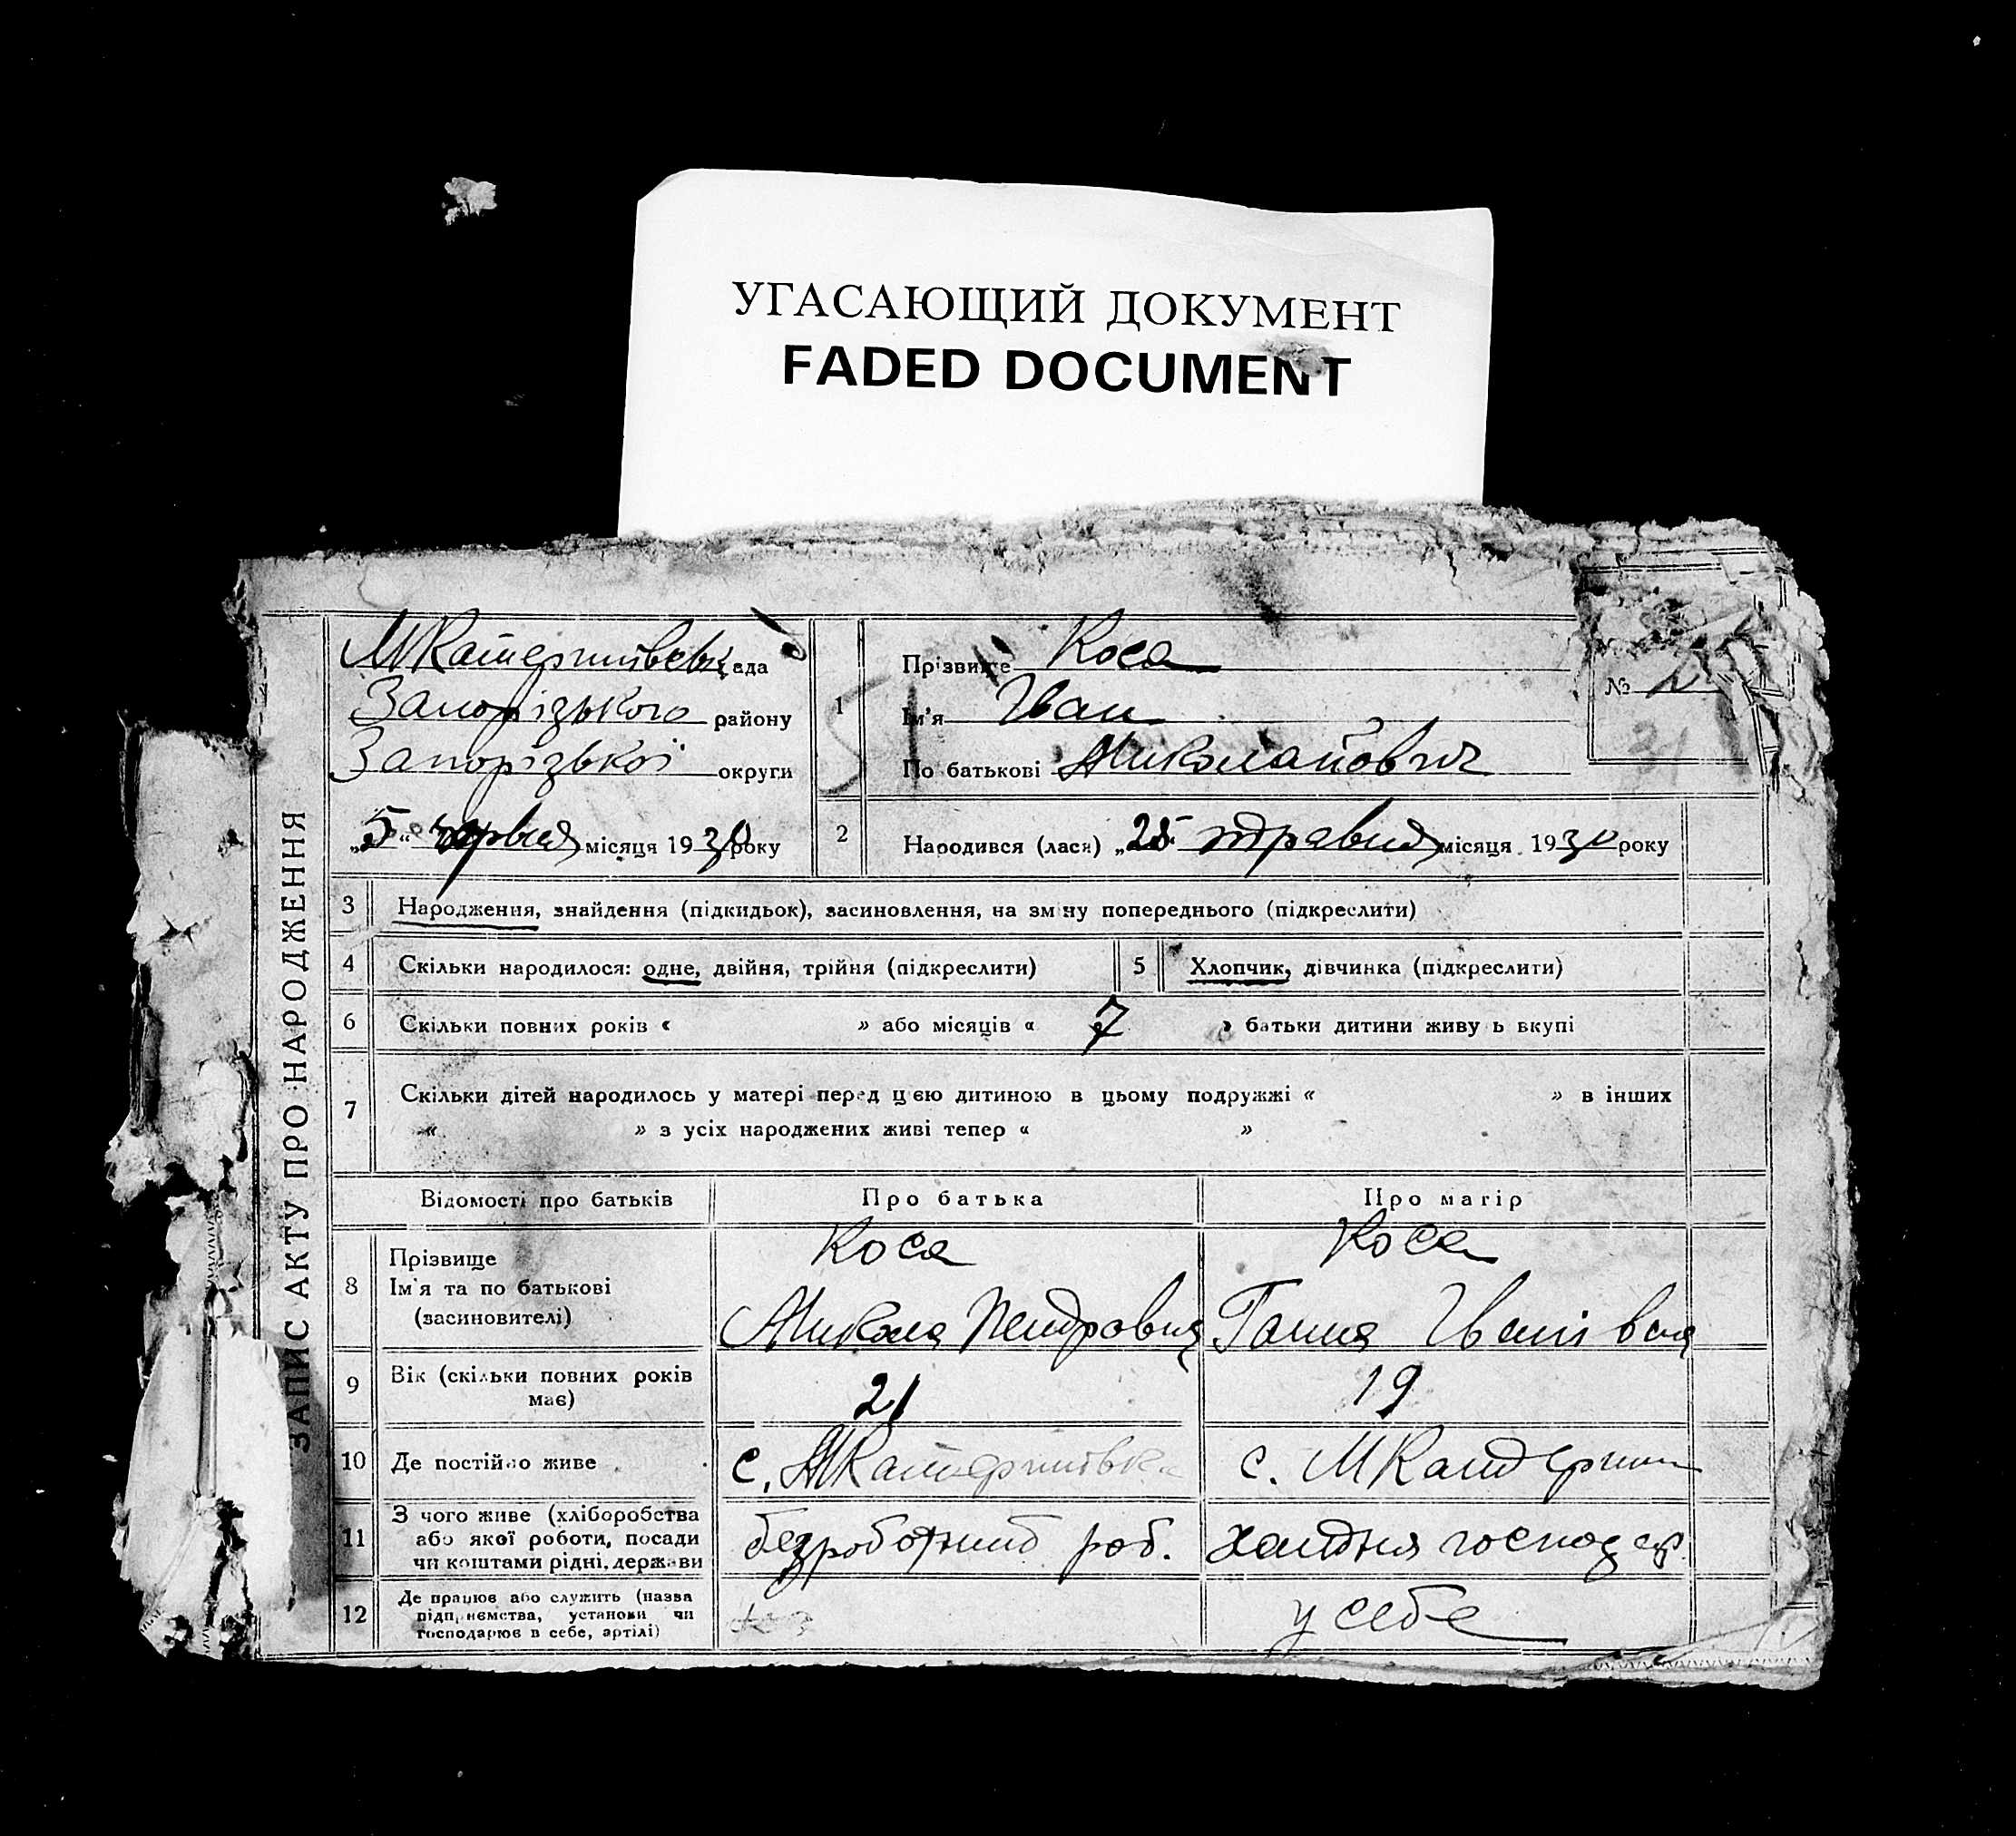 УГАСАЮЩИЙ ДОКУМЕНТ
FADED DOCUMENT
ЗАПИС АКТУ ПРО НАРОДЖЕННЯ
МКатеринівськ ада
Запорізького району
Запорізької округи
„5“ червня місяця 1930 року
1
Прізвище Коса
Ім'я Іван
По батькові Миколайович
№
31
2 Народився (лася) „25 травня місяця 1930 року
3 Народження, знайдення (підкидьок), засиновлення, на зміну попереднього (підкреслити)
4 Скільки народилося: одне, двійня, трійня (підкреслити) 5 Хлопчик, дівчинка (підкреслити)
6 Скільки повних років « » або місяців « 7 » батьки дитини живу ь вкупі
7 Скільки дітей народилось у матері перед цією дитиною в цьому подружжі « » в інших
« » з усіх народжених живі тепер « »
Відомості про батьків Про батька Про матір
8 Прізвище Коса Коса
Ім'я та по батькові
(засиновителі) Микола Петрович Ганна Іванівна
9 Вік (скільки повних років
має) 21 19
10 Де постійно живе с. МКатеринівка с. МКатерин
11 З чого живе (хліборобства
або якої роботи, посади
чи коштами рідні, держави безроботний роб. хатня господар.
12 Де працює або служить (назва
підприємства, установи чи
господарює в себе, артілі) у себе